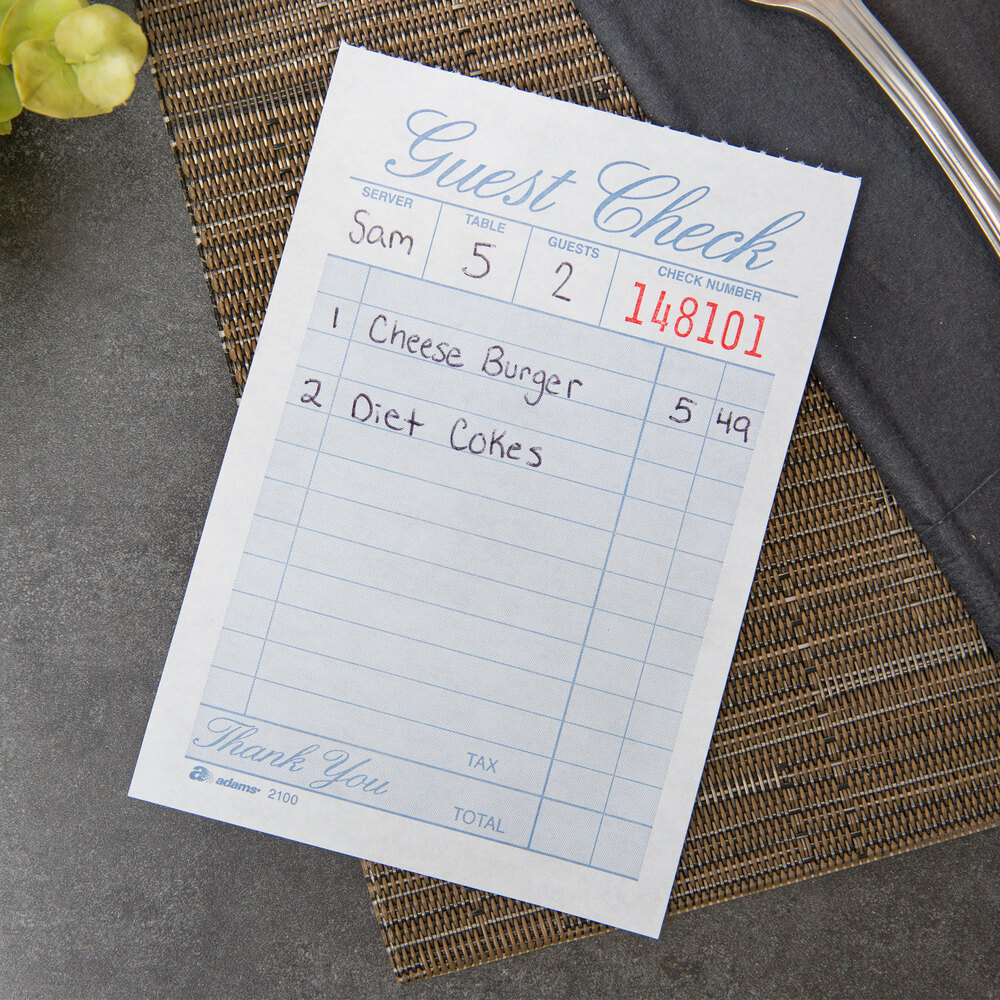 Guest Check
SERVER TABLE GUESTS CHECK NUMBER
Sam 5 2 148101
1 Cheese Burger 5 49
2 Diet Cokes
Thank You TAX
adams 2100 TOTAL